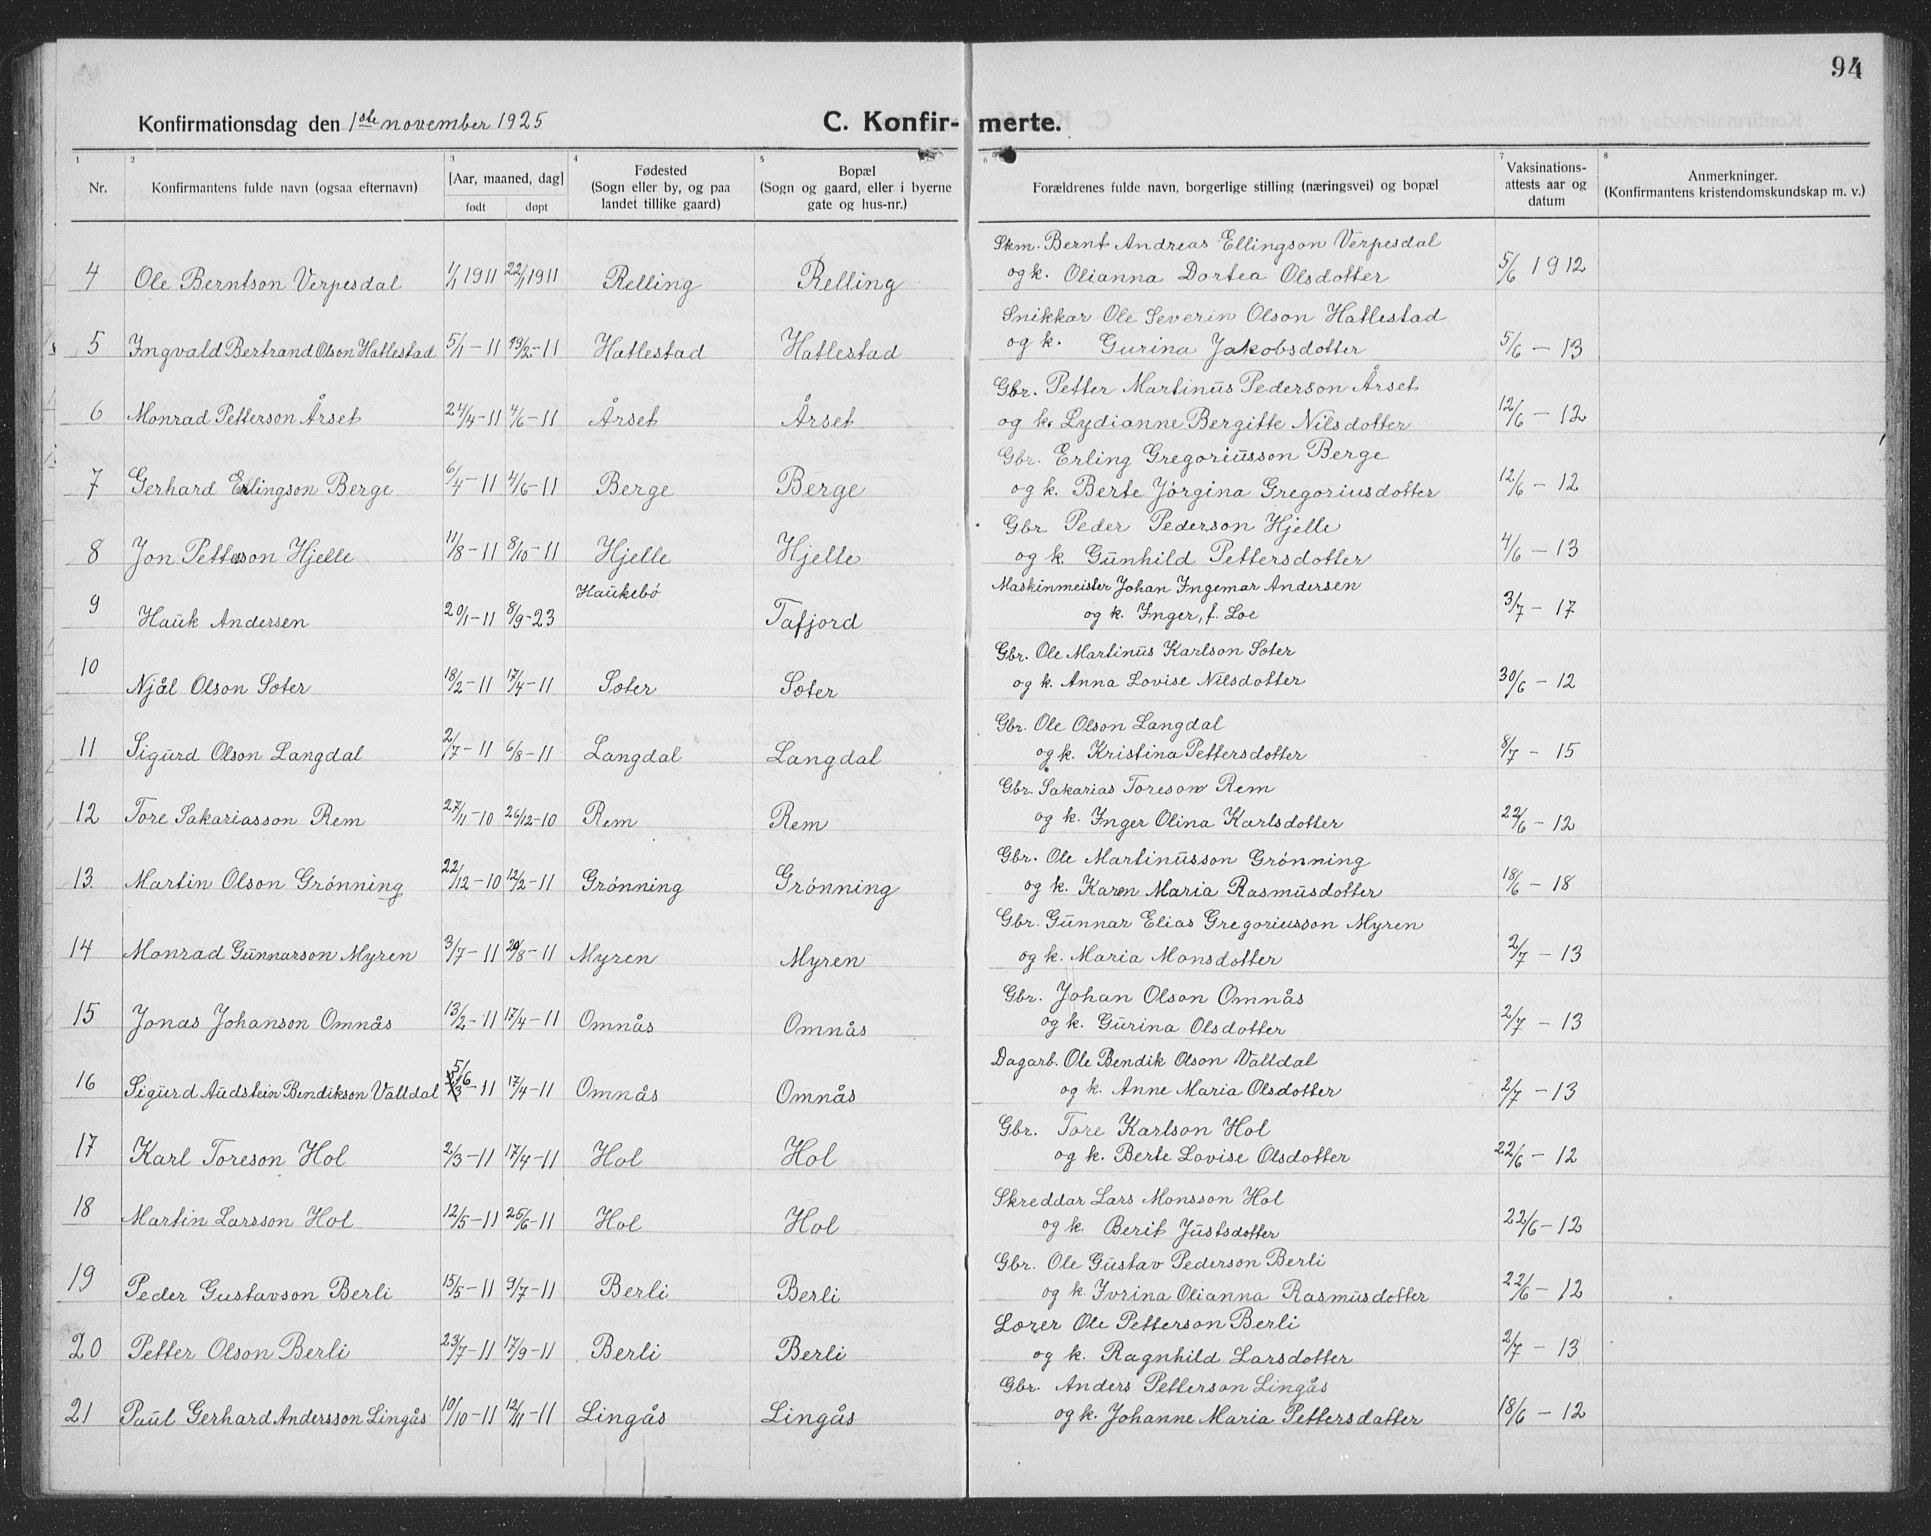 94
Konfirmationsdag den 1ste november 1925
C. Konfir-merte.
1 2 3 4 5 6 7 8
Nr.
Konfirmantens fulde navn (ogsaa efternavn)
[Aar, maaned, dag]
født døpt
Fødested
(Sogn eller by, og paa
landet tillike gaard)
Bopæl
(Sogn og gaard, eller i byerne
gate og hus-nr.)
Forældrenes fulde navn, borgerlige stilling (næringsvei) og bopæl
Vaksinations-
attests aar og
datum
Anmerkninger.
(Konfirmantens kristendomskundskap m. v.)
Skm. Bernt Andreas Ellingson Verpesdal
4 Ole Berntson Verpesdal 1/1 1911 22/1 1911 Relling Relling og k. Olianna Dortea Olsdotter 5/6 1912
Snikkar Ole Severin Olson Hatlestad
5 Yngvald Bertrand Olson Hatlestad 5/1 - 11 19/2 - 11 Hatlestad Hatlestad og k. Gurina Jakobsdotter 5/6 - 13
Gbr. Petter Martinus Pederson Årset
6 Monrad Petterson Årset 24/4 - 11 4/6 - 11 Årset Årset og k. Lydianne Bergitte Nilsdotter 12/6 - 12
Gbr. Erling Gregoriusson Berge
7 Gerhard Erlingson Berge 6/4 - 11 4/6 - 11 Berge Berge og k. Berte Jórgina Gregoriusdotter 12/6 - 12
Gbr Peder Pederson Hjelle
8 Jon Petterson Hjelle 11/8 - 11 8/10 - 11 Hjelle Hjelle og k. Gunhild Pettersdotter 4/6 - 13
Maskinmeister Johan Yngemar Andersen
9 Hauk Andersen 20/1 - 11 8/9 - 23 Haukebó Tafjord og k. Ynger, f. Loe 3/7 - 17
Gbr. Ole Martinus Karlson Sæter
10 Njål Olson Sæter 18/2 - 11 17/4 - 11 Sæter Sæter og k. Anna Lovise Nilsdotter 30/6 - 12
Gbr. Ole Olson Langdal
11 Sigurd Olson Langdal 2/7 - 11 6/8 - 11 Langdal Langdal og k. Kristina Pettersdotter 8/7 - 15
Gbr. Sakarias Toreson Rem
12 Tore Sakariasson Rem 27/11 - 10 26/12 - 10 Rem Rem og k. Ynger Olina Karlsdotter 22/6 - 12
Gbr. Ole Martinusson Grónning
13. Martin Olson Grónning 22/12 - 10 12/2 - 11 Grónning Grónning og k. Karen Maria Rasmusdotter 18/6 - 18
Gbr. Gunnar Elias Gregoriusson Myren
14 Monrad Gunnarson Myren 3/7 - 11 20/8 - 11 Myren Myren og k. Maria Monsdotter 2/7 - 13
Gbr. Johan Olson Omnås
15 Jonas Johanson Omnås 13/2 - 11 17/4 - 11 Omnås Omnås og k. Gurina Olsdotter 2/7 - 13
Dagarb. Ole Bendik Olson Valldal
16 Sigurd Audstein Bendikson Valldal - 11 17/4 - 11 Omnås Omnås og k. Anne Maria Olsdotter 2/7 - 13
Gbr. Tore Karlson Hol
17 Karl Toreson Hol 2/3 - 11 17/4 - 11 Hol Hol og k. Berte Lovise Olsdotter 22/6 - 12
Skreddar Lars Monsson Hol
18 Martin Larsson Hol 12/5 - 11 25/6 - 11 Hol Hol og k. Berit Justsdotter 22/6 - 12
Gbr. Ole Gustav Pederson Berli
19 Peder Gustavson Berli 15/5 - 11 9/7 - 11 Berli Berli og k. Yvrina Olianna Rasmusdotter 22/6 - 12
Lærer Ole Petterson Berli
20 Petter Olson Berli 23/7 - 11 17/9 - 11 Berli Berli og k. Ragnhild Larsdotter 2/7 - 13
Gbr. Anders Petterson Lingås
21 Paul Gerhard Andersson Lingås 10/10 - 11 12/11 - 11 Lingås Lingås og k. Johanne Maria Pettersdatter 18/6 - 12